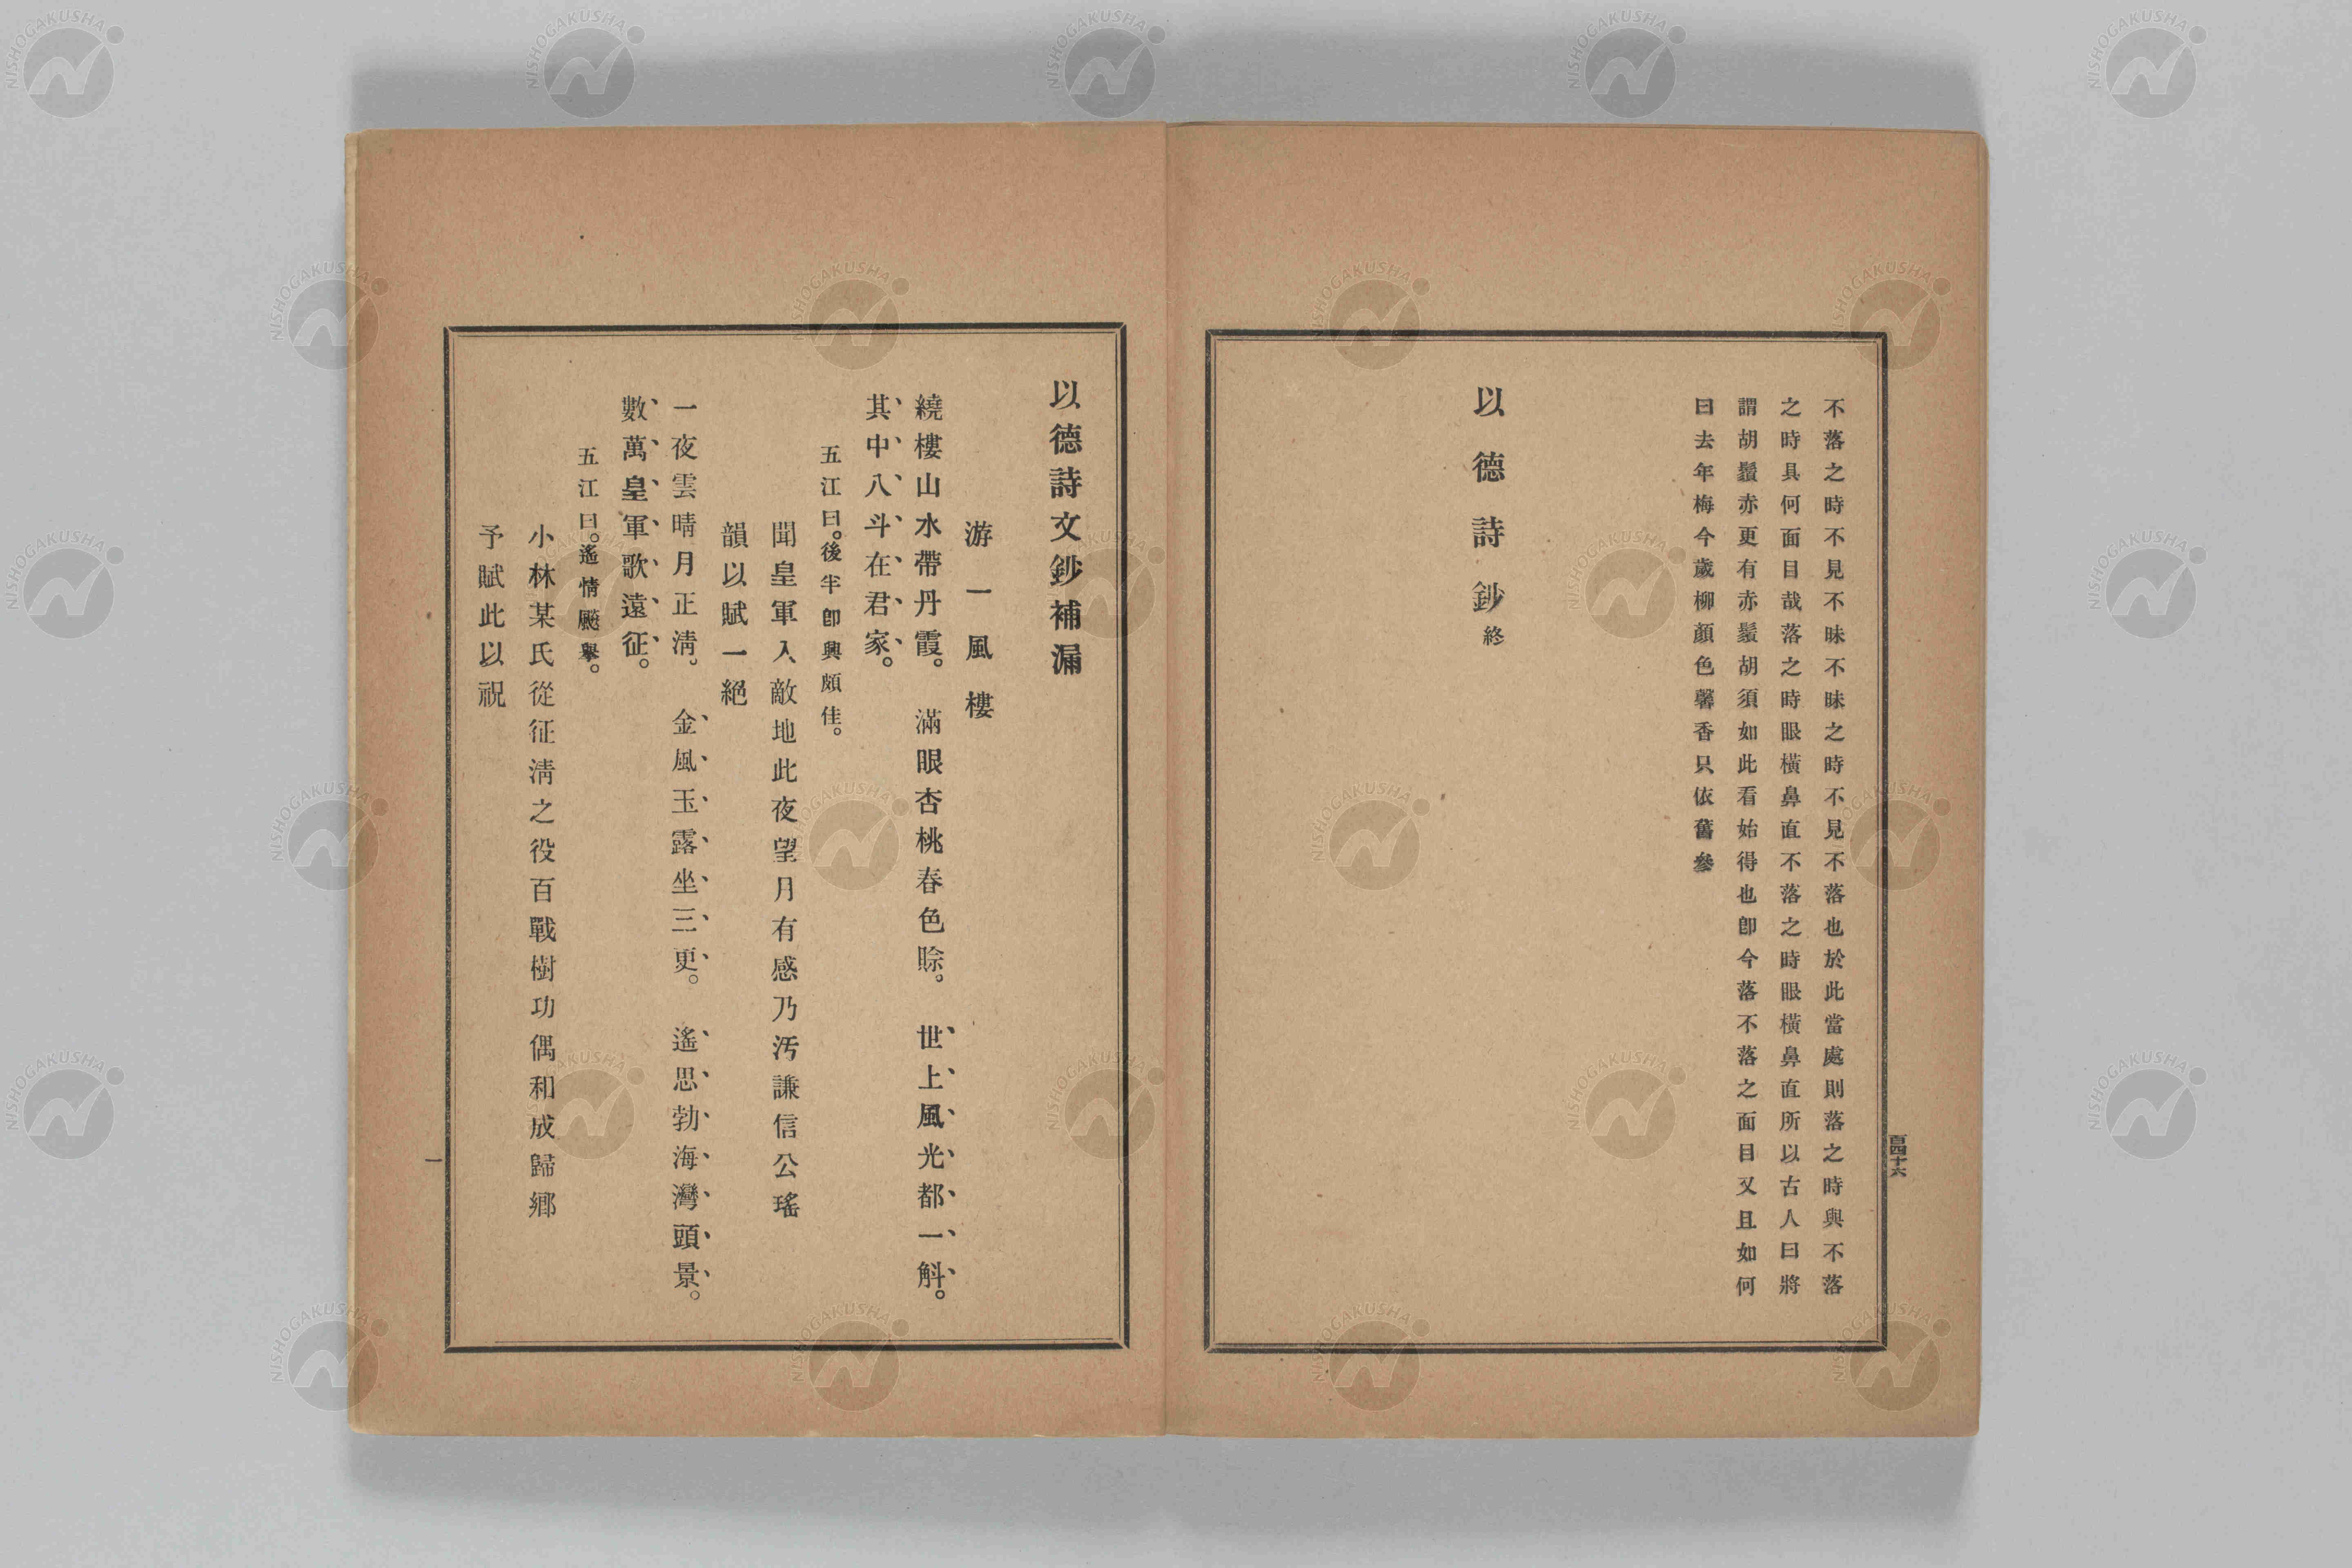 不落之時不見不昧不昧之時不見不落也於此當處則落之時與不落
之時具何面目哉落之時眼橫鼻直不落之時眼橫鼻直所以古人曰將
謂胡鬚赤更有赤鬚胡須如此看始得也卽今落不落之面目又且如何
曰去年梅今歲柳顏色馨香只依舊參
以德詩鈔終
百四十六
以德詩文鈔補漏
游一風樓
繞樓山水帶丹霞。滿眼杏桃春色賒。世、上、風、光、都、一、斛、。
其、中、八、斗、在、君、家、。
五江曰。後半卽興頗佳。
聞皇軍入敵地此夜望月有感乃汚謙信公瑤
韻以賦一絕
一夜雲晴月正淸。金、風、玉、露、坐、三、更、。遙、思、勃、海、灣、頭、景、。
數、萬、皇、軍、歌、遠、征、。
五江曰。遙情颺擧。
小林某氏從征淸之役百戰樹功偶和成歸鄕
予賦此以祝
一
NISHOGAKUSHA